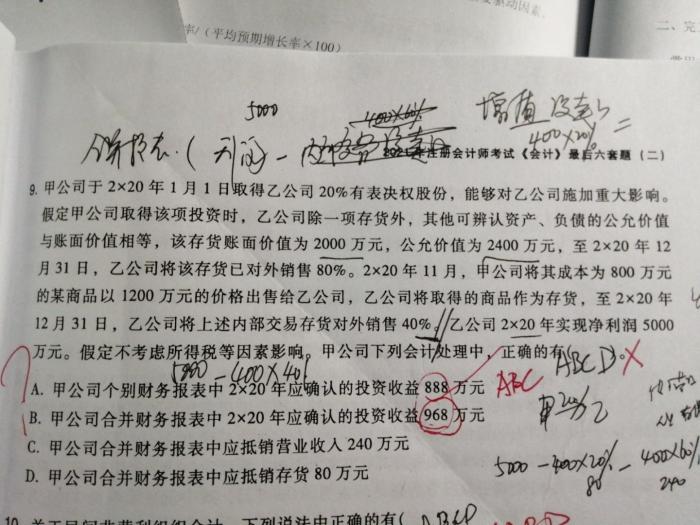 率/(平均预期增长率×100)
二、完
5000
400×60%
增值没卖
400×20%
2021年注册会计师考试《会计》最后六套题(二)
9. 甲公司于 2×20 年 1 月 1 日取得乙公司 20%有表决权股份,能够对乙公司施加重大影响。
假定甲公司取得该项投资时,乙公司除一项存货外,其他可辨认资产、负债的公允价值
与账面价值相等,该存货账面价值为 2000 万元,公允价值为 2400 万元,至 2×20 年 12
月 31 日,乙公司将该存货已对外销售 80%。2×20 年 11 月,甲公司将其成本为 800 万元
的某商品以 1200 万元的价格出售给乙公司,乙公司将取得的商品作为存货,至 2×20 年
12 月 31 日,乙公司将上述内部交易存货对外销售 40%。乙公司 2×20 年实现净利润 5000
万元。假定不考虑所得税等因素影响。甲公司下列会计处理中,正确的有( ABCD )。×
5000-400×40%
A. 甲公司个别财务报表中 2×20 年应确认的投资收益 888 万元 ABC
B. 甲公司合并财务报表中 2×20 年应确认的投资收益 968 万元
C. 甲公司合并财务报表中应抵销营业收入 240 万元
D. 甲公司合并财务报表中应抵销存货 80 万元
5000-400×20%-400×60%
80 240